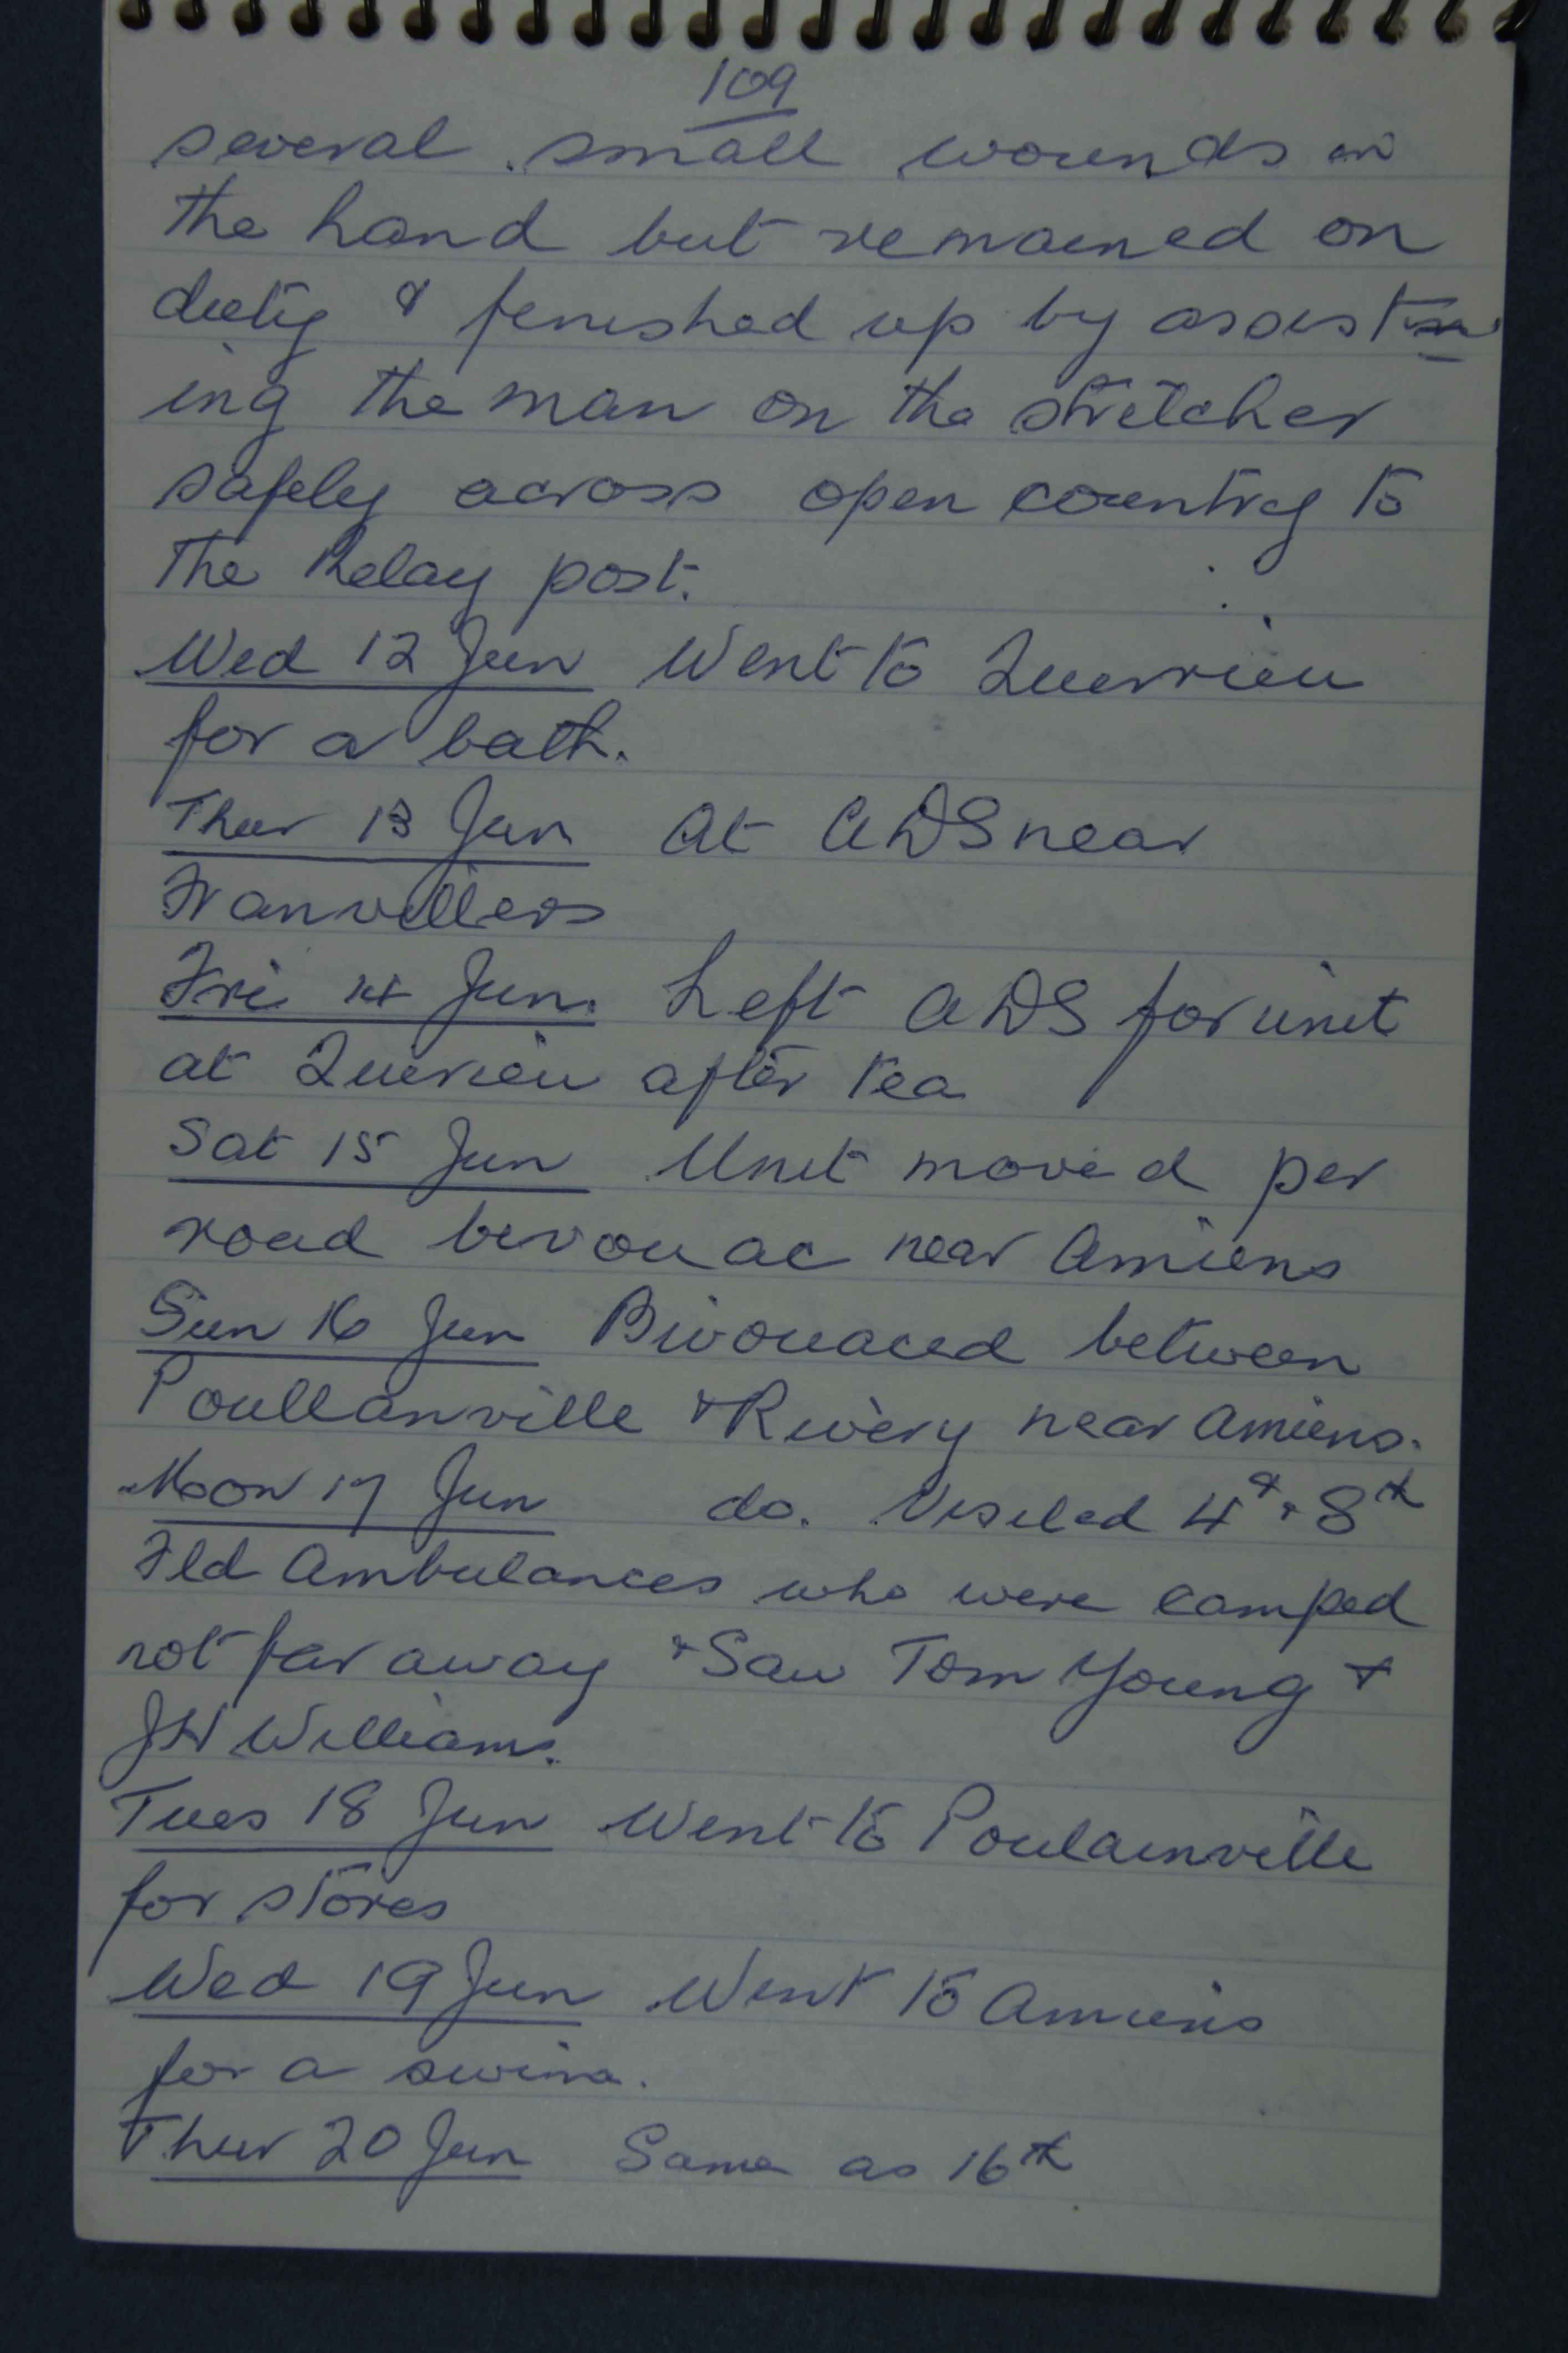 109
several small wounds in
the hand but remained on
duty & finished up by assist
ing the man on the stretcher
safely across open country to
the Relay post.
Wed 12 Jun Went to Querrieu
for a bath.
Thur 13 Jun At ADS near
Franvillers
Fri 14 Jun. Left ADS for unit
at Querieu after tea
Sat 15 Jun Unit moved per
road bivouac near Amiens
Sun 16 Jun Bivouaced between
Poullanville & Rivery near Amiens.
Mon 17 Jun do. Visited 4th & 8th
Fld Ambulances who were camped
not far away & Saw Tom Young &
JH Williams.
Tues 18 Jun Went to Poulainville
for stores
Wed 19 Jun Went to Amiens
for a swim.
Thur 20 Jun Same as 16th